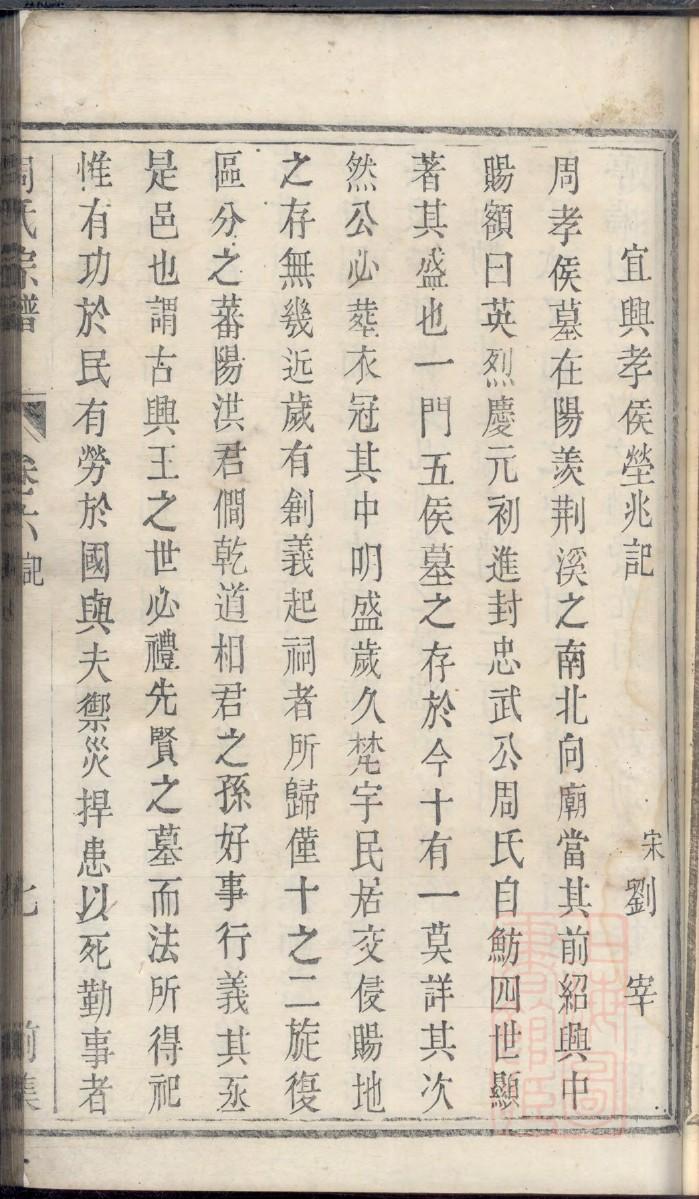 宜興孝侯塋兆記
宋劉宰
周孝侯墓在陽羨荆溪之南北向廟當其前紹興中
賜額曰英烈慶元初進封忠武公周氏自魴四世顯
著其盛也一門五侯墓之存於今十有一莫詳其次
然公必塟衣冠其中明盛歲久梵宇民居交侵賜地
之存無幾近歲有創義起祠者所歸僅十之二旋復
區分之蕃陽洪君僴乾道相君之孫好事行義其丞
是邑也謂古興王之世必禮先賢之墓而法所得祀
惟有功於民有勞於國與夫禦災捍患以死勤事者
周氏宗譜
卷之 記
前集